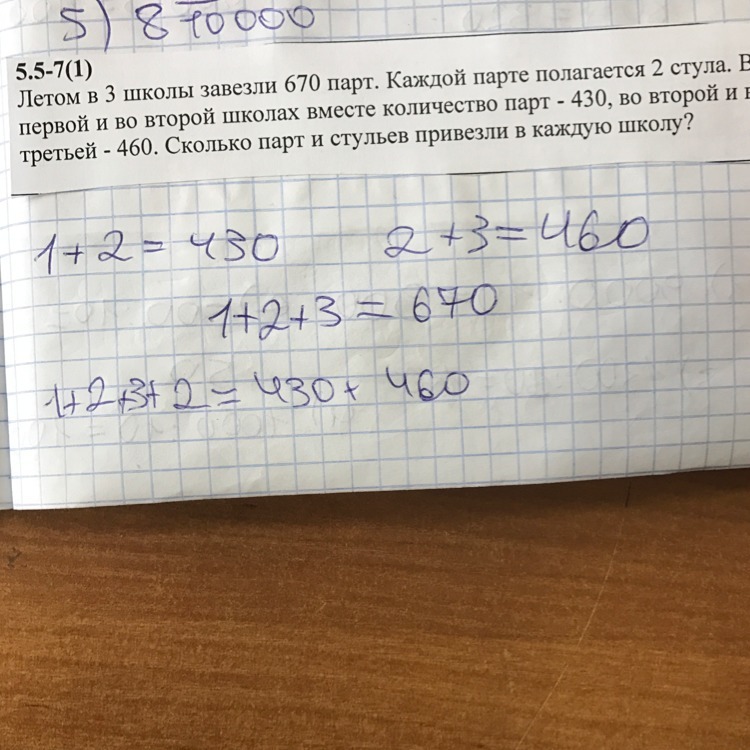 5) 870000
5.5-7(1)
Летом в 3 школы завезли 670 парт. Каждой парте полагается 2 стула. В
первой и во второй школах вместе количество парт - 430, во второй и в
третьей - 460. Сколько парт и стульев привезли в каждую школу?
1+2=430 2+3=460
1+2+3=670
1+2+3+2=430+460